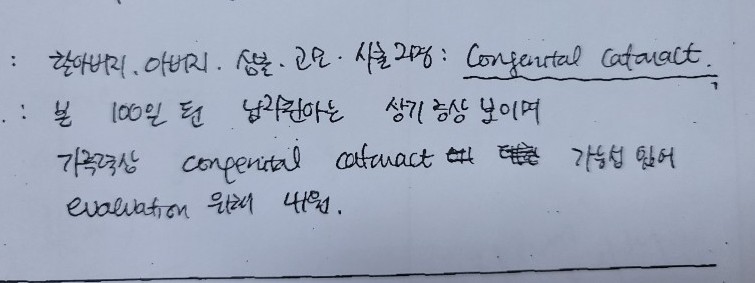 : 할아버지. 아버지. 삼촌. 고모. 사촌 2명: Congenital Cataract.
.: 본 100일 된 남자환아는 상기 증상 보이며
가족력상 congenital cataract 가능성 있어
evaluation 위해 내원.